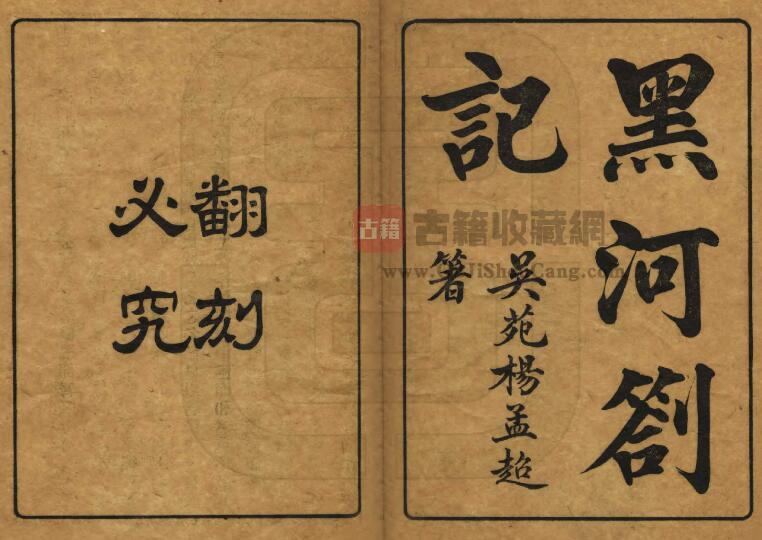 黑河箚
記
吳苑楊孟超
箸
翻刻
必究
古籍
古籍收藏網
www.GuJiShouCang.com